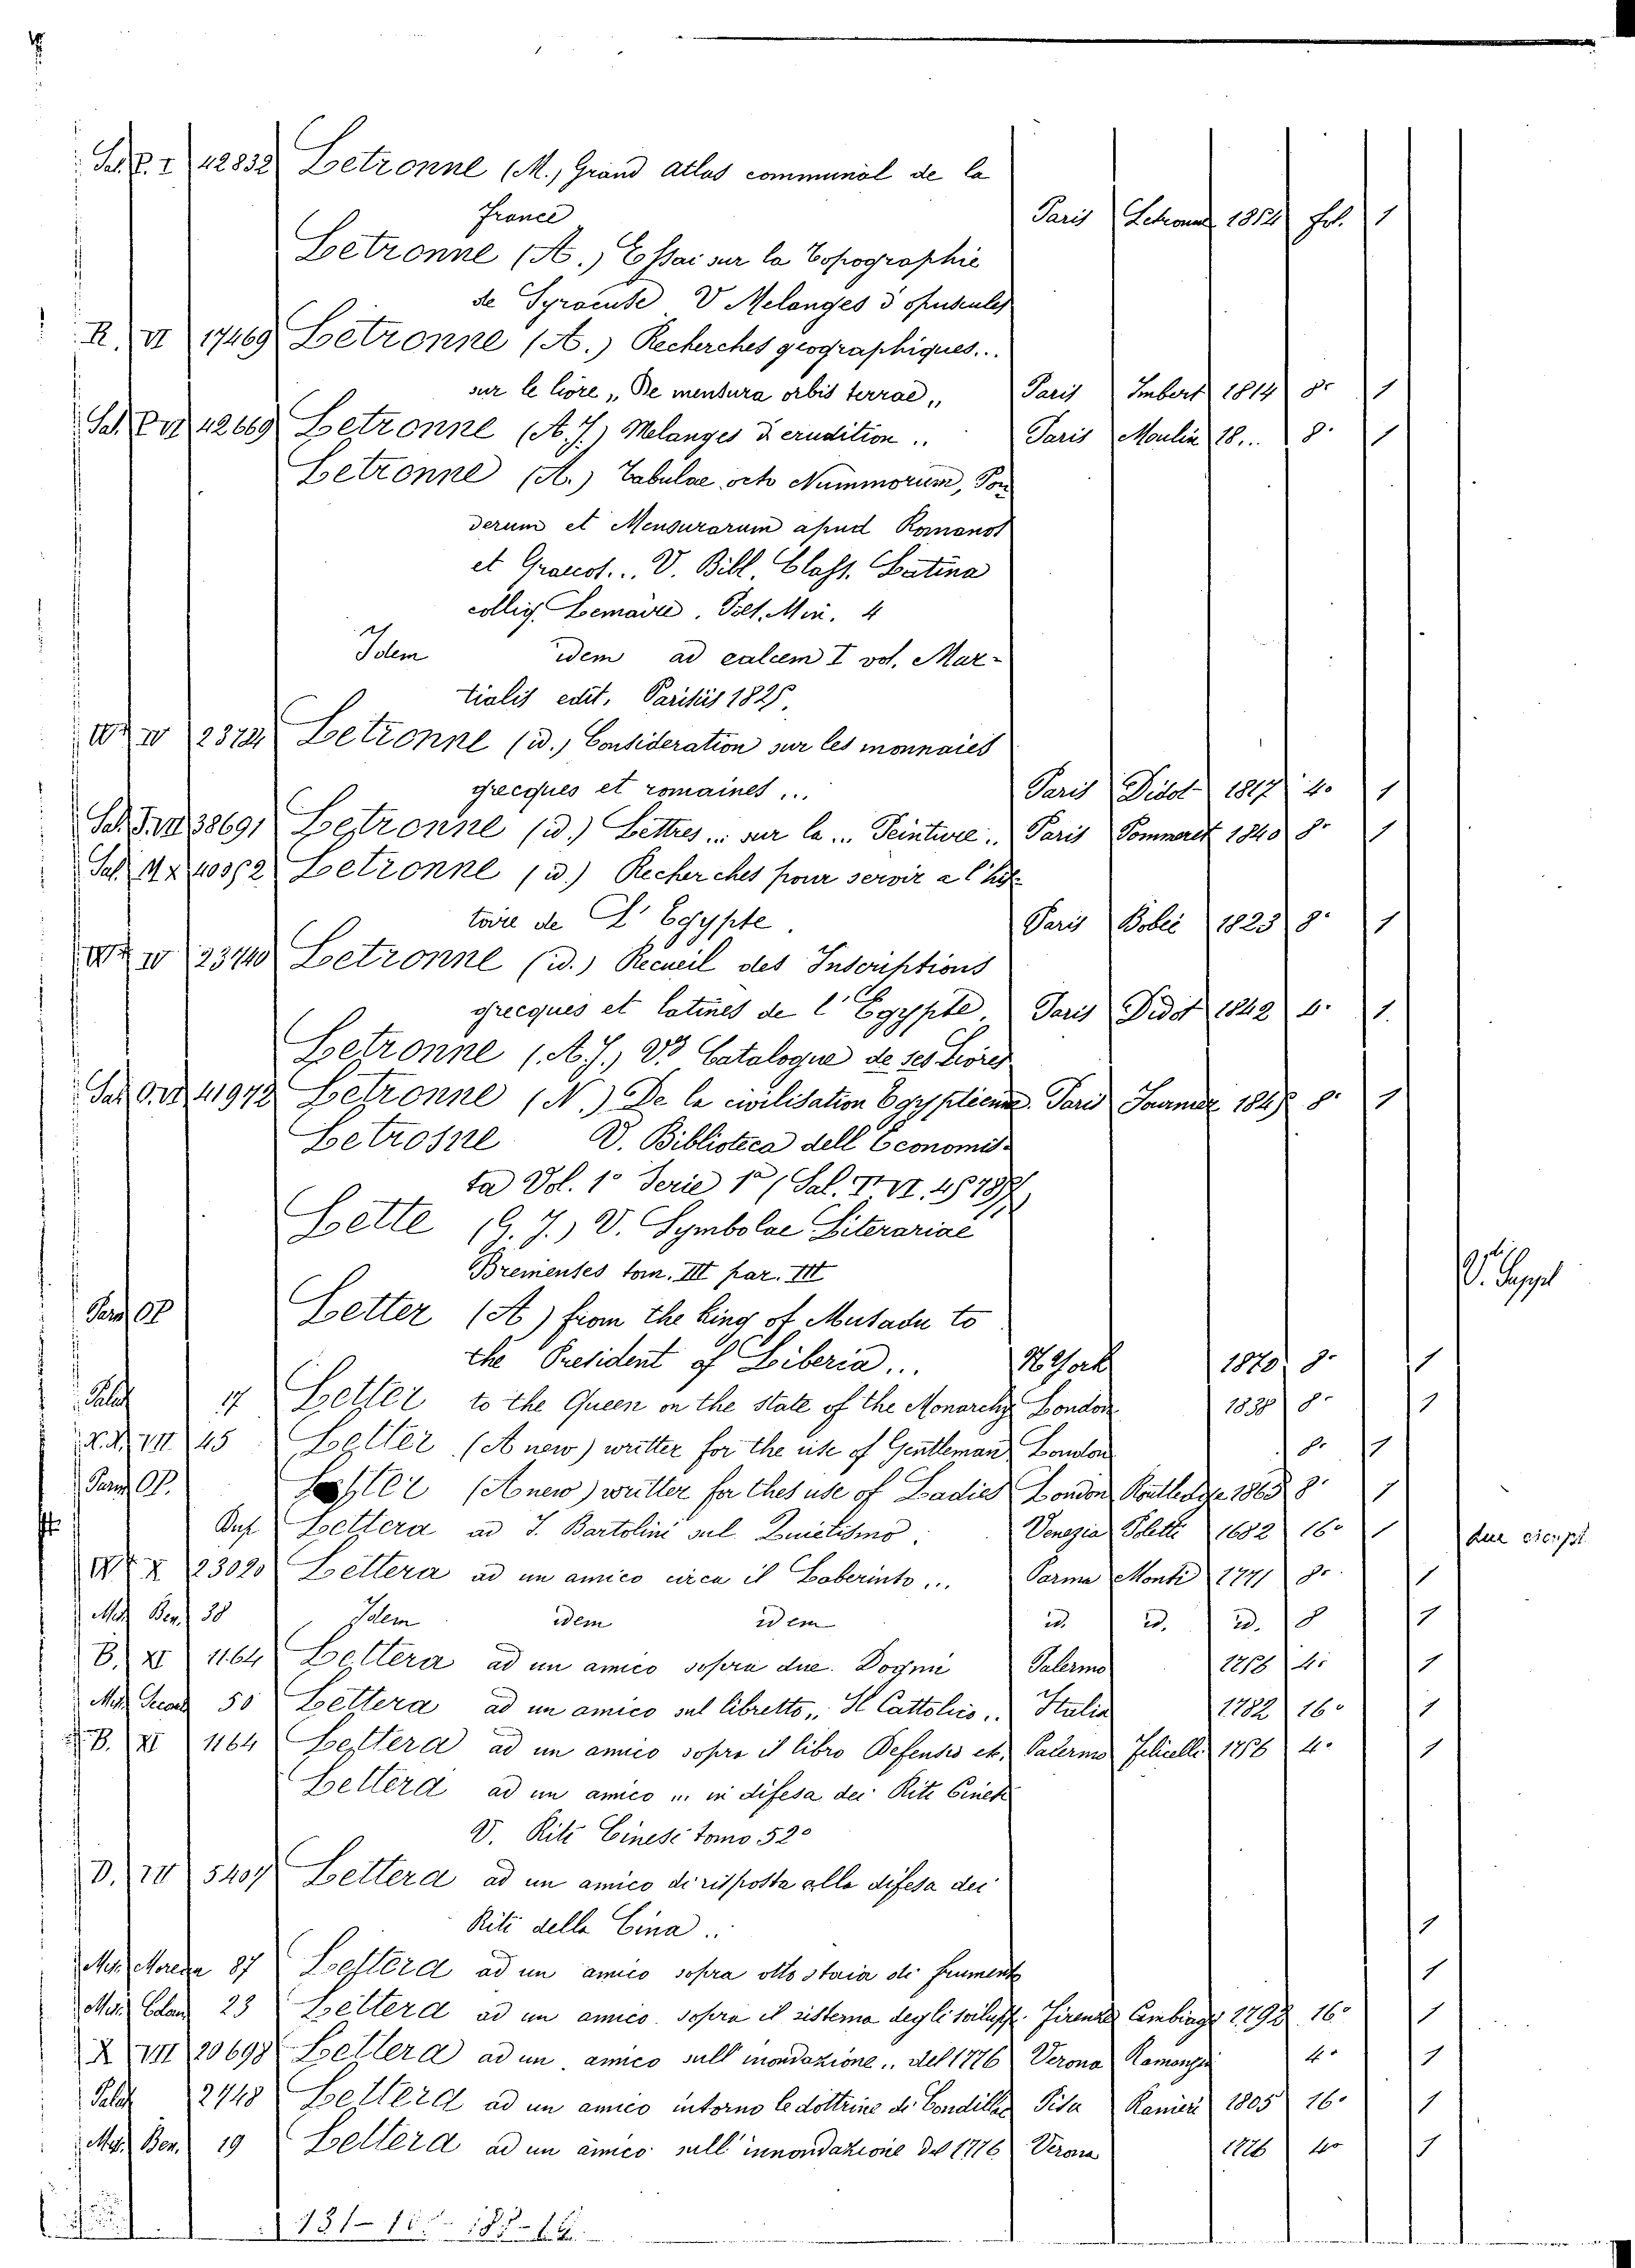 42832 Letronne (M.) Grand Atlas communal de la
France Paris fol. 1
Letronne (A.) Essai sur la Topographie
de Syracuse V Melanges d'opuscules
R. VI 17469 Letronne (A.) Recherches geographiques...
sur le livre „De mensura orbis terrae„ Paris Imbert 1814 8º 1
42669 Letronne (A. J.) Melanges d'erudition .. Paris Moulin 18.. 8º 1
Letronne (A.) Tabulae octo Nummorum, Pon
derum et Mensurarum apud Romanos
et Graecos... V. Bibl. Class. Latina
collig. Lemaire. Poet. Min. 4
Idem idem ad calcem I vol. Mar-
tialis edit. Parisiis 1825.
Letronne (id.) Consideration sur les monnaies
grecques et romaines ... Paris Didot 1817 4º 1
38691 Letronne (id.) Lettres ... sur la ... Peinture .. Paris 1840 8º 1
Letronne (id.) Recherches pour servir a l'his
toire de L'Egypte. Paris Bobée 1823 8º 1
IV 23740 Letronne (id.) Recueil des Inscriptions
grecques et latines de l'Egypte, Paris Didot 1842 4º 1.
Letronne (A. J.) Vº Catalogue de ses livres
41972 Letronne (N.) De la civilisation Egyptienne. Paris 8º 1
Letrosne V. Biblioteca dell Economis-
ta Vol. 1º Serie 1ª
Lette (G. J.) V. Symbolae Literariae
Bremenses tom. III par. III
V. Suppl
Letter (A) from the king of Musadu to
the President of Liberia... N. York 1870 8º 1
Palat 17 Letter to the Queen on the state of the Monarchy London 1838 8º 1
VII 45 Letter (A new) writter for the use of Gentleman London 8º 1
Letter (A new) writter for thes use of Ladies London Routledge 1865 8º 1
Lettera ad J. Bartolini sul Quietismo. Venezia Poletti 1682 16º 1 due esempl.
X 23020 Lettera ad un amico circa il Laberinto ... Parma Monti 1771 8º 1
Mis. Ben. 38 Idem idem idem id. id. id. 8 1
B. XI 1164 Lettera ad un amico sopra due Dogmi Palermo 4º 1
50 Lettera ad un amico sul libretto „ Il Cattolico .. Italia 1782 16º 1
B. XI 1164 Lettera ad un amico sopra il libro Defensio etc. Palermo Felicella 1756 4º 1
Lettera ad un amico ... in difesa dei Riti Cinesi
V. Riti Cinesi tomo 52º
D. IV 5407 Lettera ad un amico di risposta alla difesa dei
Riti della Cina .. 1
87 Lettera ad un amico sopra otto staia di frumento 1
23 Lettera ad un amico sopra il sistema degli Firenze Cambiagi 1792 16º 1
X VIII 20698 Lettera ad un amico sull'inondazione .. del 1776 Verona Ramanzini 4º 1
Palat 2748 Lettera ad un amico intorno le dottrine di Condillac Pisa Ranieri 1805 16º 1
Mis. Ben. 19 Lettera ad un amico sull'innondazione del 1776 Verona 1776 4º 1